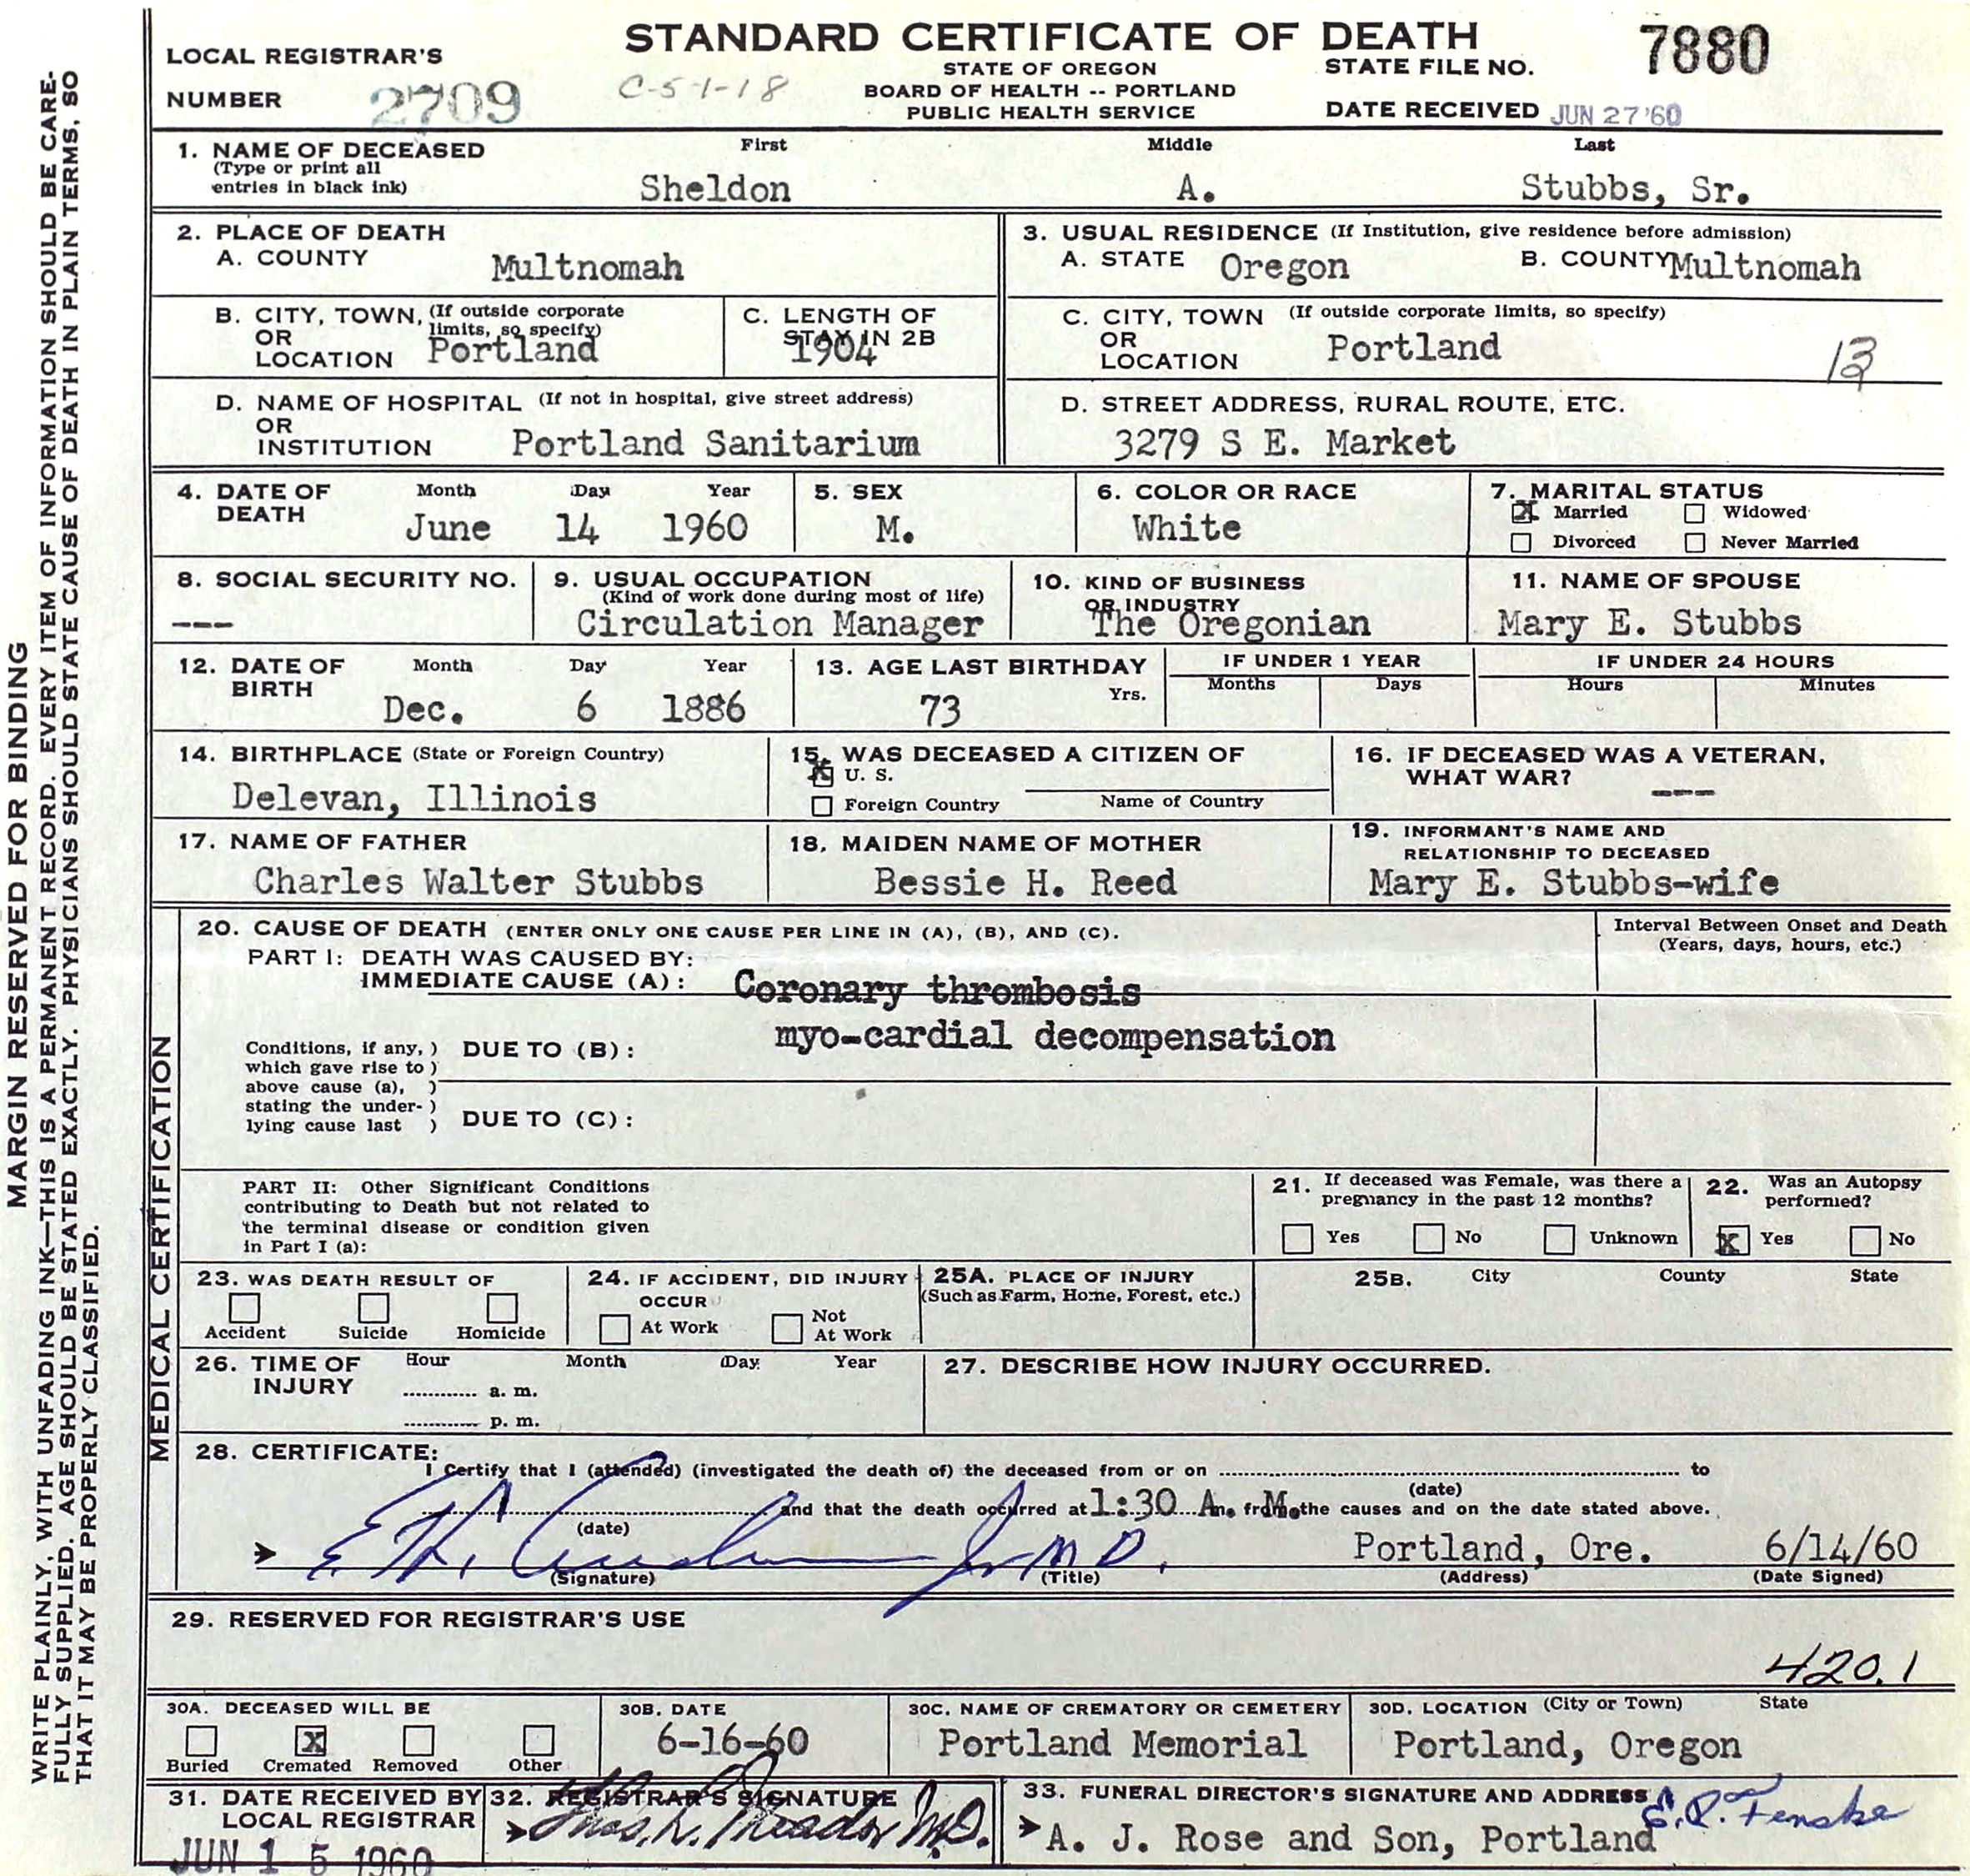 STANDARD CERTIFICATE OF DEATH
STATE OF OREGON
BOARD OF HEALTH -- PORTLAND
PUBLIC HEALTH SERVICE
LOCAL REGISTRAR'S
NUMBER 2709
C-51-18
STATE FILE NO. 7880
DATE RECEIVED JUN 27 '60
1. NAME OF DECEASED
(Type or print all
entries in black ink)
First Middle Last
Sheldon A. Stubbs, Sr.
2. PLACE OF DEATH
A. COUNTY Multnomah
3. USUAL RESIDENCE (If Institution, give residence before admission)
A. STATE Oregon B. COUNTY Multnomah
B. CITY, TOWN, (If outside corporate
OR limits, so specify)
LOCATION Portland
C. LENGTH OF
STAY IN 2B
1904
C. CITY, TOWN (If outside corporate limits, so specify)
OR
LOCATION Portland
13
D. NAME OF HOSPITAL (If not in hospital, give street address)
OR
INSTITUTION Portland Sanitarium
D. STREET ADDRESS, RURAL ROUTE, ETC.
3279 S E. Market
4. DATE OF DEATH
Month Day Year
June 14 1960
5. SEX
M.
6. COLOR OR RACE
White
7. MARITAL STATUS
X Married Widowed
Divorced Never Married
8. SOCIAL SECURITY NO.
---
9. USUAL OCCUPATION
(Kind of work done during most of life)
Circulation Manager
10. KIND OF BUSINESS
OR INDUSTRY
The Oregonian
11. NAME OF SPOUSE
Mary E. Stubbs
12. DATE OF BIRTH
Month Day Year
Dec. 6 1886
13. AGE LAST BIRTHDAY
73 Yrs.
IF UNDER 1 YEAR
Months Days
IF UNDER 24 HOURS
Hours Minutes
14. BIRTHPLACE (State or Foreign Country)
Delevan, Illinois
15. WAS DECEASED A CITIZEN OF
X U. S.
Foreign Country Name of Country
16. IF DECEASED WAS A VETERAN,
WHAT WAR?
---
17. NAME OF FATHER
Charles Walter Stubbs
18. MAIDEN NAME OF MOTHER
Bessie H. Reed
19. INFORMANT'S NAME AND
RELATIONSHIP TO DECEASED
Mary E. Stubbs-wife
MEDICAL CERTIFICATION
20. CAUSE OF DEATH (ENTER ONLY ONE CAUSE PER LINE IN (A), (B), AND (C).
Interval Between Onset and Death
(Years, days, hours, etc.)
PART I: DEATH WAS CAUSED BY:
IMMEDIATE CAUSE (A): Coronary thrombosis
myo-cardial decompensation
Conditions, if any, )
which gave rise to )
above cause (a), )
stating the under- )
lying cause last )
DUE TO (B):
DUE TO (C):
PART II: Other Significant Conditions
contributing to Death but not related to
the terminal disease or condition given
in Part I (a):
21. If deceased was Female, was there a
pregnancy in the past 12 months?
Yes No Unknown
22. Was an Autopsy
performed?
X Yes No
23. WAS DEATH RESULT OF
Accident Suicide Homicide
24. IF ACCIDENT, DID INJURY
OCCUR
At Work Not At Work
25A. PLACE OF INJURY
(Such as Farm, Home, Forest, etc.)
25B. City County State
26. TIME OF INJURY
Hour Month Day Year
a. m.
p. m.
27. DESCRIBE HOW INJURY OCCURRED.
28. CERTIFICATE:
I Certify that I (attended) (investigated the death of) the deceased from or on to
(date)
and that the death occurred at 1:30 A. M. m. from the causes and on the date stated above.
(date)
Jr M D. Portland, Ore. 6/14/60
(Signature) (Title) (Address) (Date Signed)
29. RESERVED FOR REGISTRAR'S USE
420.1
30A. DECEASED WILL BE
Buried X Cremated Removed Other
30B. DATE
6-16-60
30C. NAME OF CREMATORY OR CEMETERY
Portland Memorial
30D. LOCATION (City or Town) State
Portland, Oregon
31. DATE RECEIVED BY
LOCAL REGISTRAR
JUN 15 1960
32. REGISTRAR'S SIGNATURE
Thos. L. Meador M.D.
33. FUNERAL DIRECTOR'S SIGNATURE AND ADDRESS
E. P. Fenske
A. J. Rose and Son, Portland
MARGIN RESERVED FOR BINDING
WRITE PLAINLY, WITH UNFADING INK—THIS IS A PERMANENT RECORD. EVERY ITEM OF INFORMATION SHOULD BE CARE-
FULLY SUPPLIED. AGE SHOULD BE STATED EXACTLY. PHYSICIANS SHOULD STATE CAUSE OF DEATH IN PLAIN TERMS, SO
THAT IT MAY BE PROPERLY CLASSIFIED.